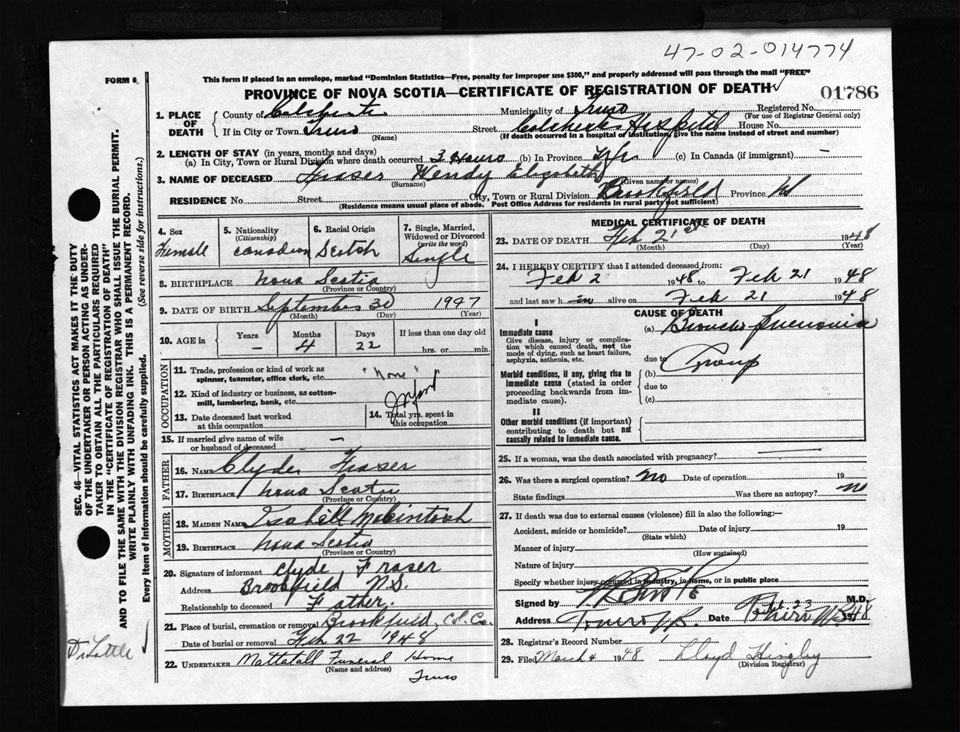 47-02-014774
FORM 6.
This form if placed in an envelope, marked "Dominion Statistics—Free, penalty for improper use $300," and properly addressed will pass through the mail "FREE"
PROVINCE OF NOVA SCOTIA—CERTIFICATE OF REGISTRATION OF DEATH
01786
1. PLACE OF DEATH
County of Colchester Municipality of Truro Registered No.
(For use of Registrar General only)
If in City or Town Truro Street Colchester Hospital House No.
(Name) (If death occurred in a hospital or institution, give the name instead of street and number)
2. LENGTH OF STAY (in years, months and days)
(a) In City, Town or Rural Division where death occurred 3 Hours (b) In Province Life (c) In Canada (if immigrant) —
3. NAME OF DECEASED Fraser Wendy Elizabeth
(Surname) (Given name or names)
RESIDENCE No. Street City, Town or Rural Division Brookfield Province NS
(Residence means usual place of abode. Post Office Address for residents in rural parts not sufficient)
4. Sex
Female
5. Nationality
(Citizenship)
Canadian
6. Racial Origin
Scotch
7. Single, Married, Widowed or Divorced
(write the word)
Single
8. BIRTHPLACE Nova Scotia
(Province or Country)
9. DATE OF BIRTH September 30 1947
(Month) (Day) (Year)
10. AGE in
Years Months Days If less than one day old
— 4 22 hrs. or min.
OCCUPATION
11. Trade, profession or kind of work as spinner, teamster, office clerk, etc. "None"
12. Kind of industry or business, as cotton-mill, lumbering, bank, etc. Infant
13. Date deceased last worked at this occupation
14. Total yrs. spent in this occupation
15. If married give name of wife or husband of deceased —
FATHER
16. NAME Clyde Fraser
17. BIRTHPLACE Nova Scotia
(Province or Country)
MOTHER
18. MAIDEN NAME Isabell MacIntosh
19. BIRTHPLACE Nova Scotia
(Province or Country)
20. Signature of informant Clyde Fraser
Address Brookfield N.S.
Relationship to deceased Father.
21. Place of burial, cremation or removal Brookfield, Col. Co.
Date of burial or removal Feb 22 1948
22. UNDERTAKER Mattatall Funeral Home
(Name and address)
Truro
MEDICAL CERTIFICATE OF DEATH
23. DATE OF DEATH Feb 21st 1948
(Month) (Day) (Year)
24. I HEREBY CERTIFY that I attended deceased from:
Feb 21 1948 to Feb 21 1948
and last saw h im alive on Feb 21 1948
CAUSE OF DEATH
I
Immediate cause
Give disease, injury or complication which caused death, not the mode of dying, such as heart failure, asphyxia, asthenia, etc.
(a) Broncho Pneumonia
due to
Morbid conditions, if any, giving rise to immediate cause (stated in order proceeding backwards from immediate cause).
(b) Croup
due to
(c)
II
Other morbid conditions (if important) contributing to death but not causally related to immediate cause.
25. If a woman, was the death associated with pregnancy?
26. Was there a surgical operation? no Date of operation 19
State findings Was there an autopsy? no
27. If death was due to external causes (violence) fill in also the following:
Accident, suicide or homicide? Date of injury 19
(State which)
Manner of injury
(How sustained)
Nature of injury
Specify whether injury occurred in industry, in home, or in public place
Signed by M.D.
Address Truro N.S. Date Feb. 23 1948
28. Registrar's Record Number
29. Filed March 4 1948 Lloyd Hingley
(Division Registrar)
SEC. 46—VITAL STATISTICS ACT MAKES IT THE DUTY OF THE UNDERTAKER OR PERSON ACTING AS UNDERTAKER TO OBTAIN ALL THE PARTICULARS REQUIRED IN THE "CERTIFICATE OF REGISTRATION OF DEATH" AND TO FILE THE SAME WITH THE DIVISION REGISTRAR WHO SHALL ISSUE THE BURIAL PERMIT.
WRITE PLAINLY WITH UNFADING INK. THIS IS A PERMANENT RECORD.
Every item of Information should be carefully supplied. (See reverse side for instructions.)